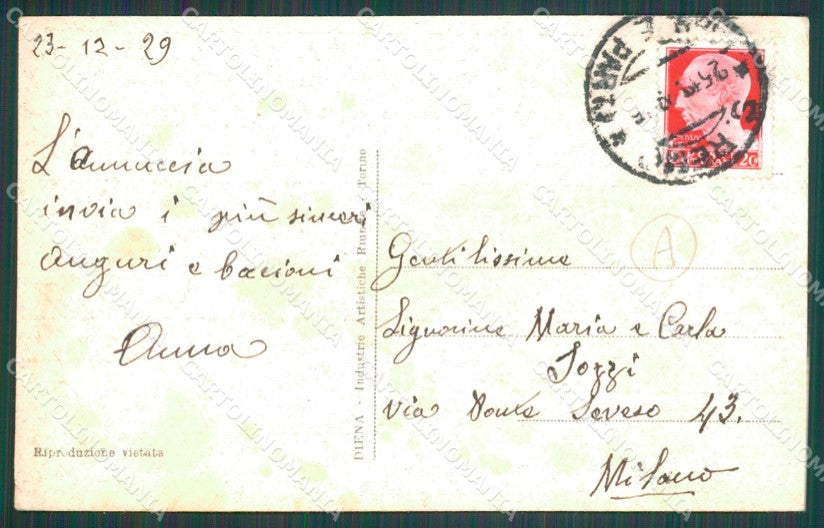 23-12-29
L'Annuccia
invia i più sinceri
auguri e bacioni
Anna
Riproduzione vietata
DIENA - Industrie Artistiche Riunite - Torino
PARTENZE
20
A
Gentilissime
Signorine Maria e Carla
Sozzi
Via Ponte Seveso 43.
Milano
CARTOLINOMANIA